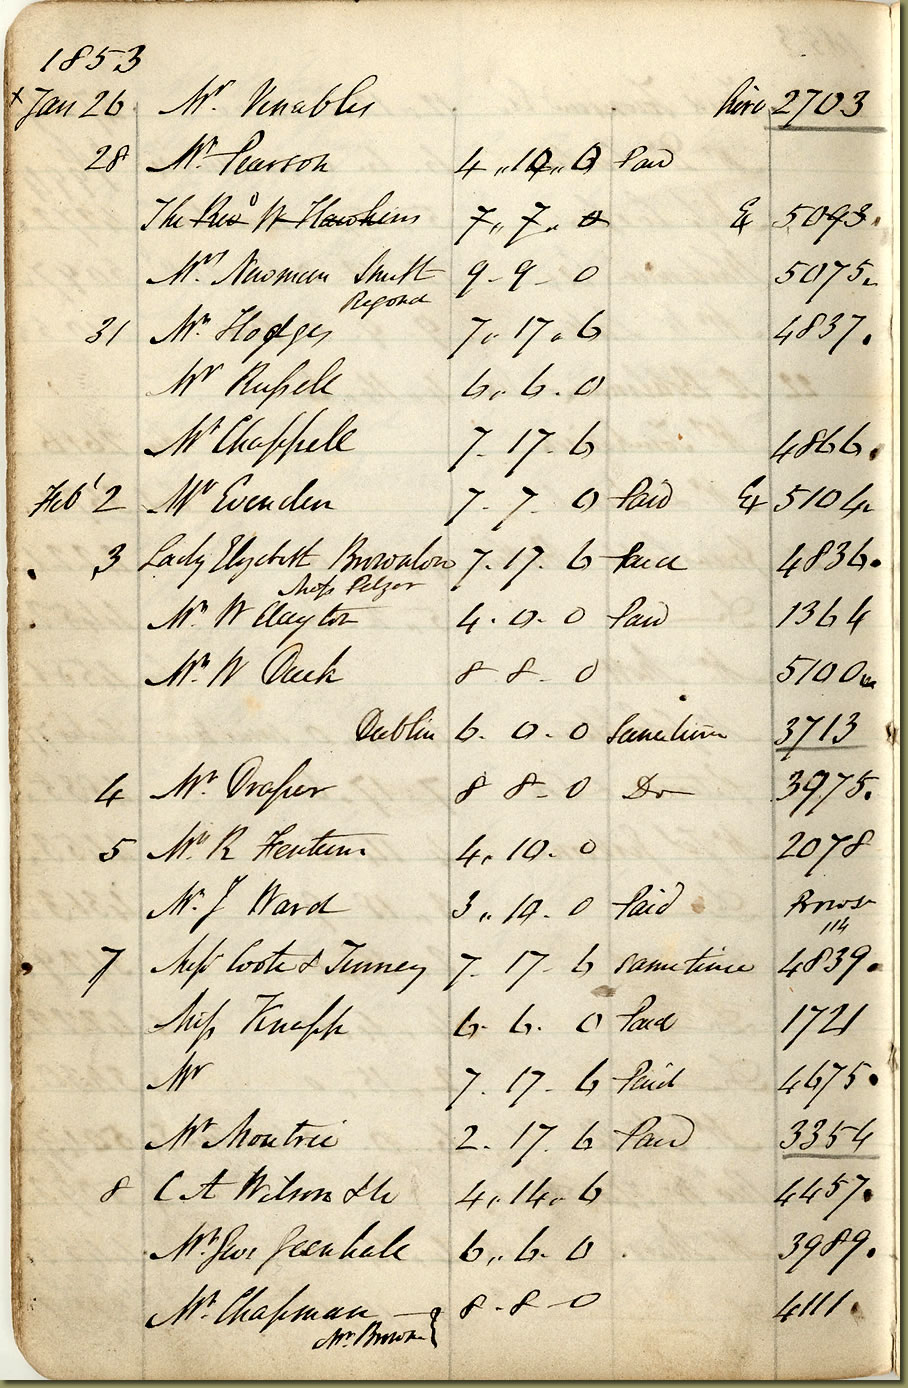 1853
x Jan 26 Mr Venables Hire 2703
28 Mr Pearson 4 ,, 10 ,, 0 Paid
The Revd W Hawkins 7 ,, 7 ,, 0 Ex 5093.
Mrs Newman Shutt 9 - 9 - 0 5075.
Regond
31 Mr Hodges 7 ,, 17 ,, 6 4837.
Mr Russell 6 ,, 6 . 0
Mr Chappell 7 . 17 . 6 4866.
Feby 2 Mr Evenden 7 - 7 . 0 Paid Ex 5104
. 3 Lady Elizabeth Brownlow 7 . 17 . 6 Paid 4836.
Miss Pelzer
. Mr W Clayton 4 . 0 . 0 Paid 1364
Mr W Duck 8 8 . 0 5100
Dublin 6 . 0 . 0 Sametime 3713
4 Mr Draper 8 8 - 0 Do 3975.
5 Mr R Fentum 4 . 10 . 0 2078
Mr J Ward 3 ,, 10 . 0 Paid Prowse
114
. 7 Miss Coote & Tinney 7 - 17 - 6 sametime 4839.
Miss Knapp 6 - 6 . 0 Paid 1721
Mr 7 . 17 . 6 Paid 4675.
Mr Moutrie 2 . 17 . 6 Paid 3354
8 C A Wilson & Co 4 ,, 14 ,, 6 4457.
Mr Geo Greenhale 6 ,, 6 . 0 3989.
Mr Chapman 8 - 8 - 0 4111.
Mr Browne